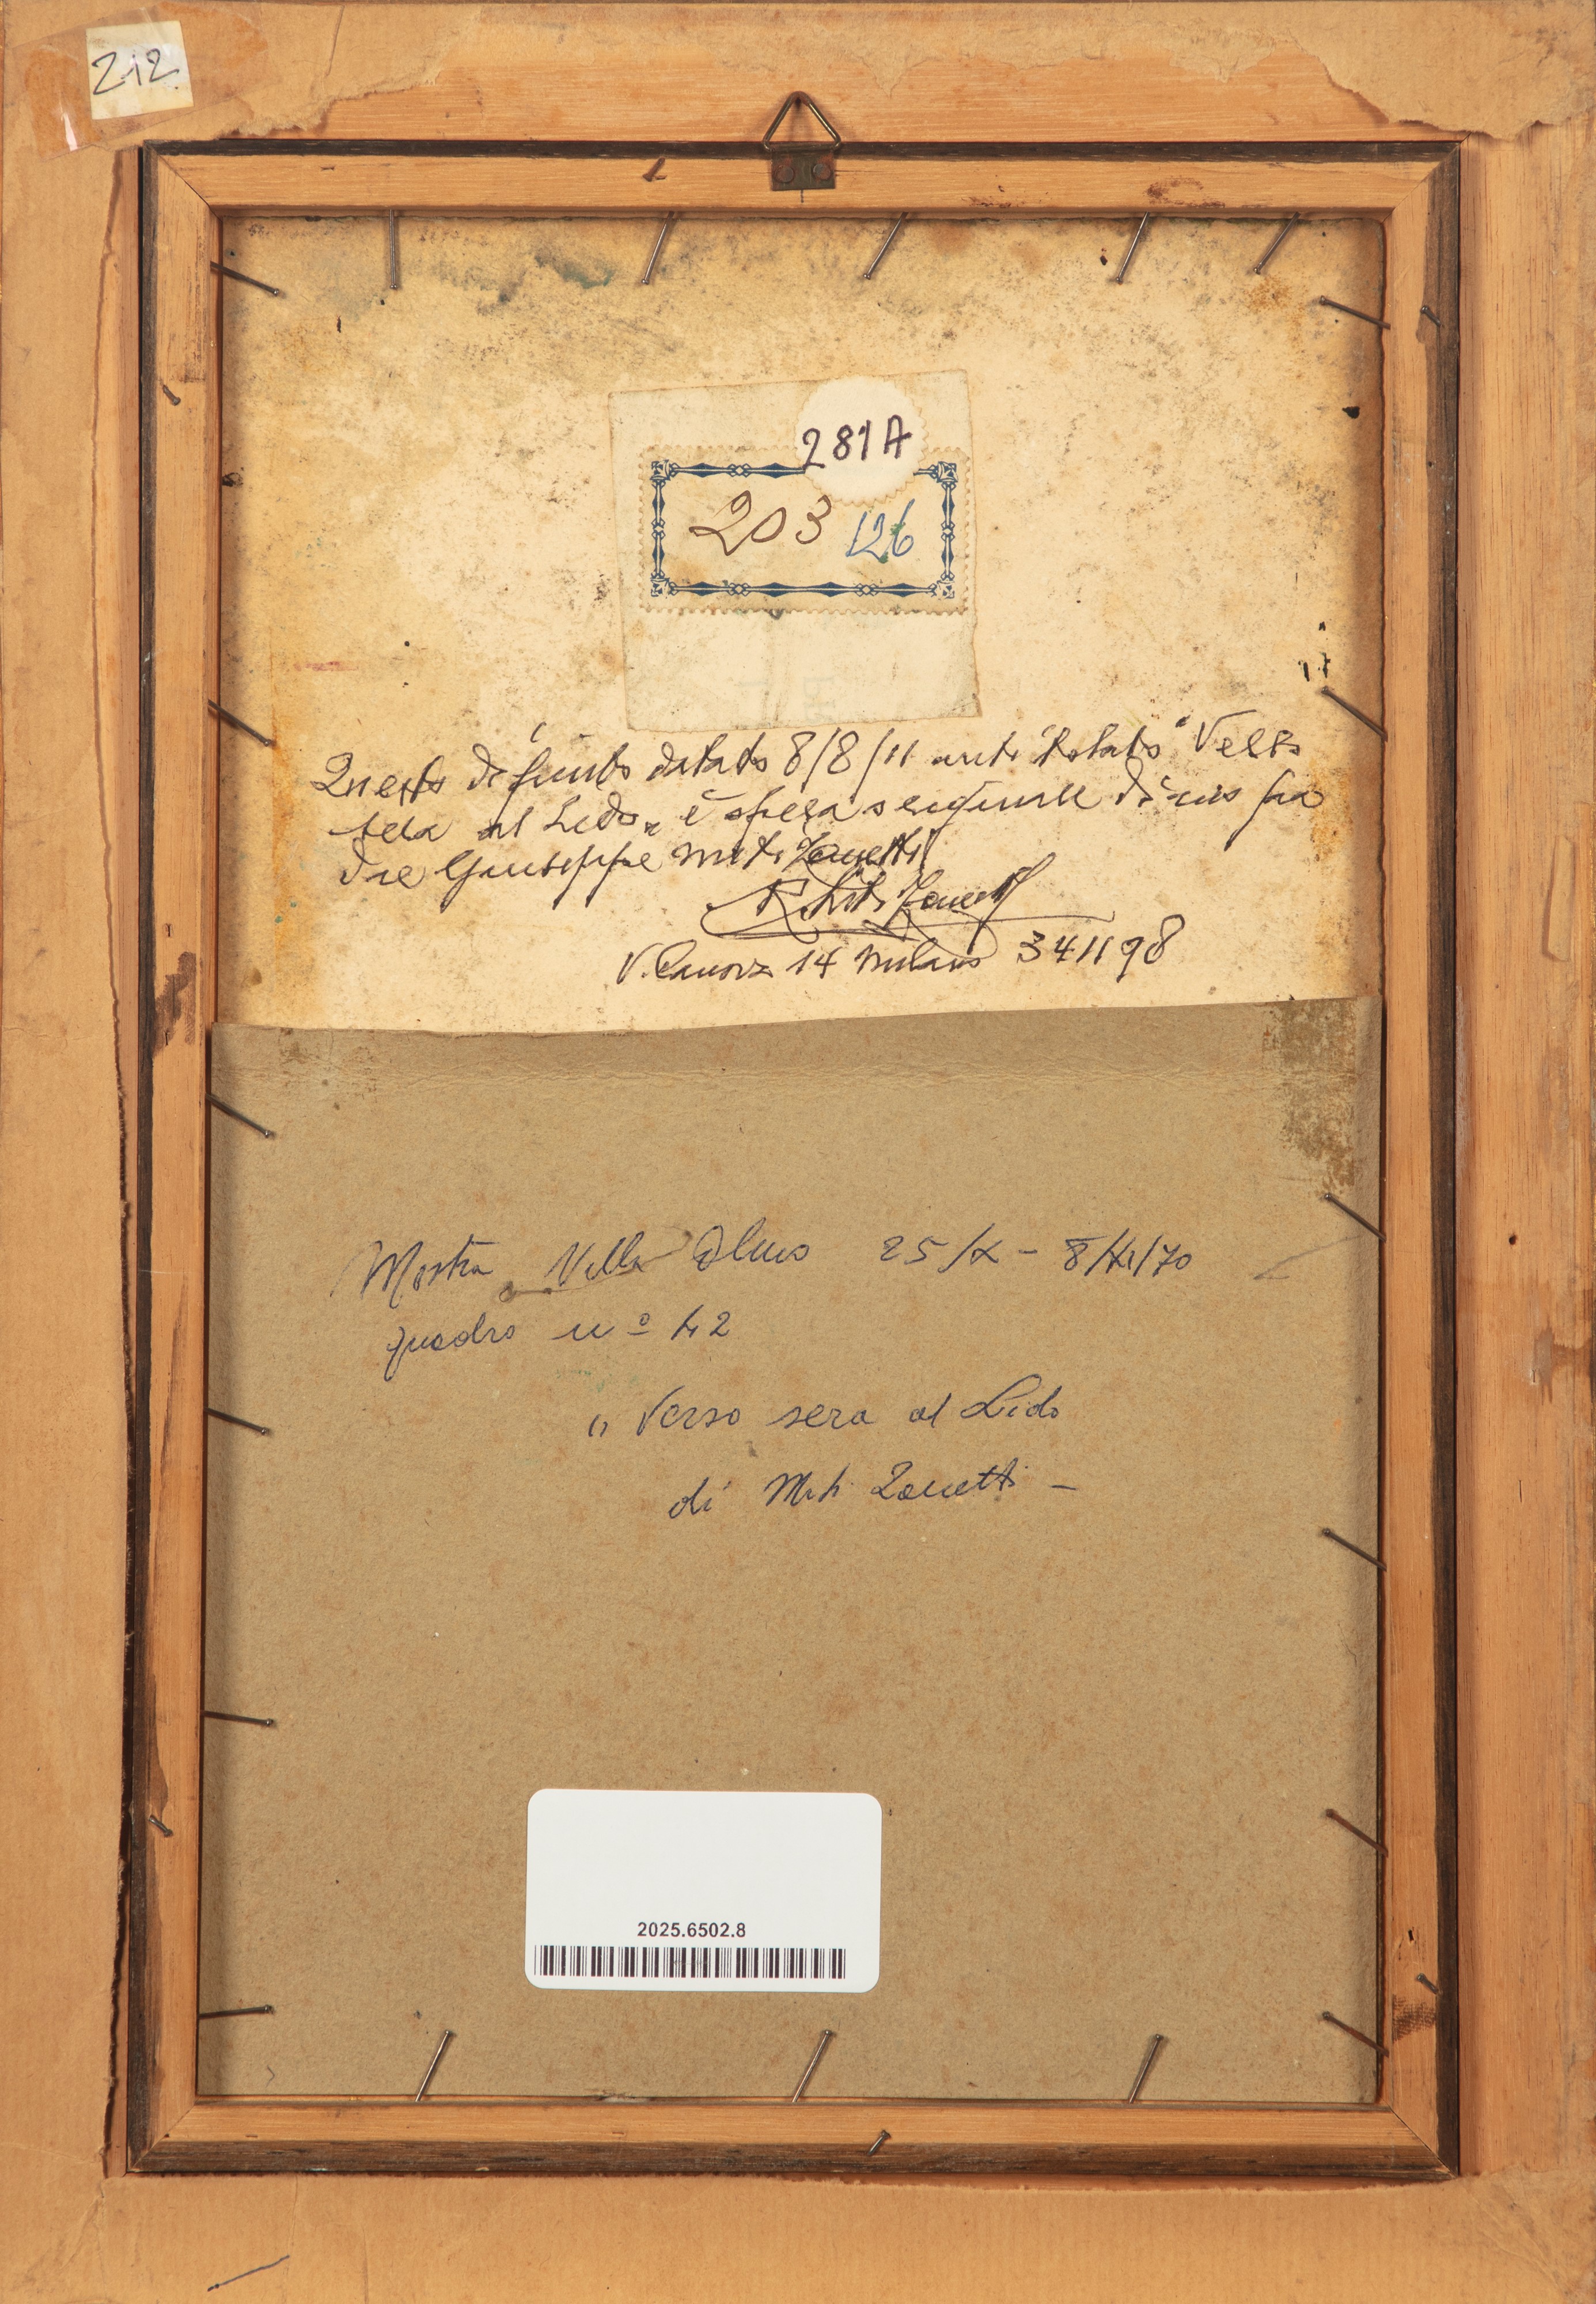 212
281A
203 126
Questo dipinto datato 8/8/11 intitolato "Verso
sera al Lido" è opera originale di mio pa
dre Giuseppe Miti Zanetti
Miti Zanetti
V. Canova 14 Milano 341198
Mostra Villa Olmo 25/X - 8/XI/70
quadro nº 42
" Verso sera al Lido
di Miti Zanetti -
2025.6502.8